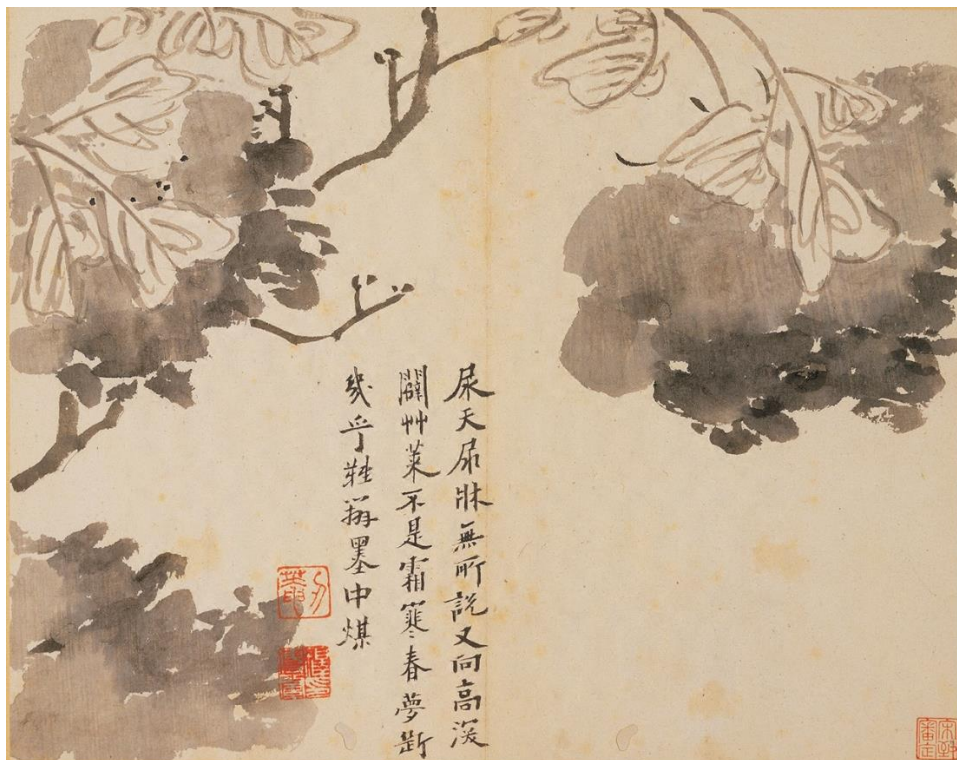 尿天尿牀無所說又向高深
闢艸萊不是霜寒春夢斷
幾乎難辨墨中煤